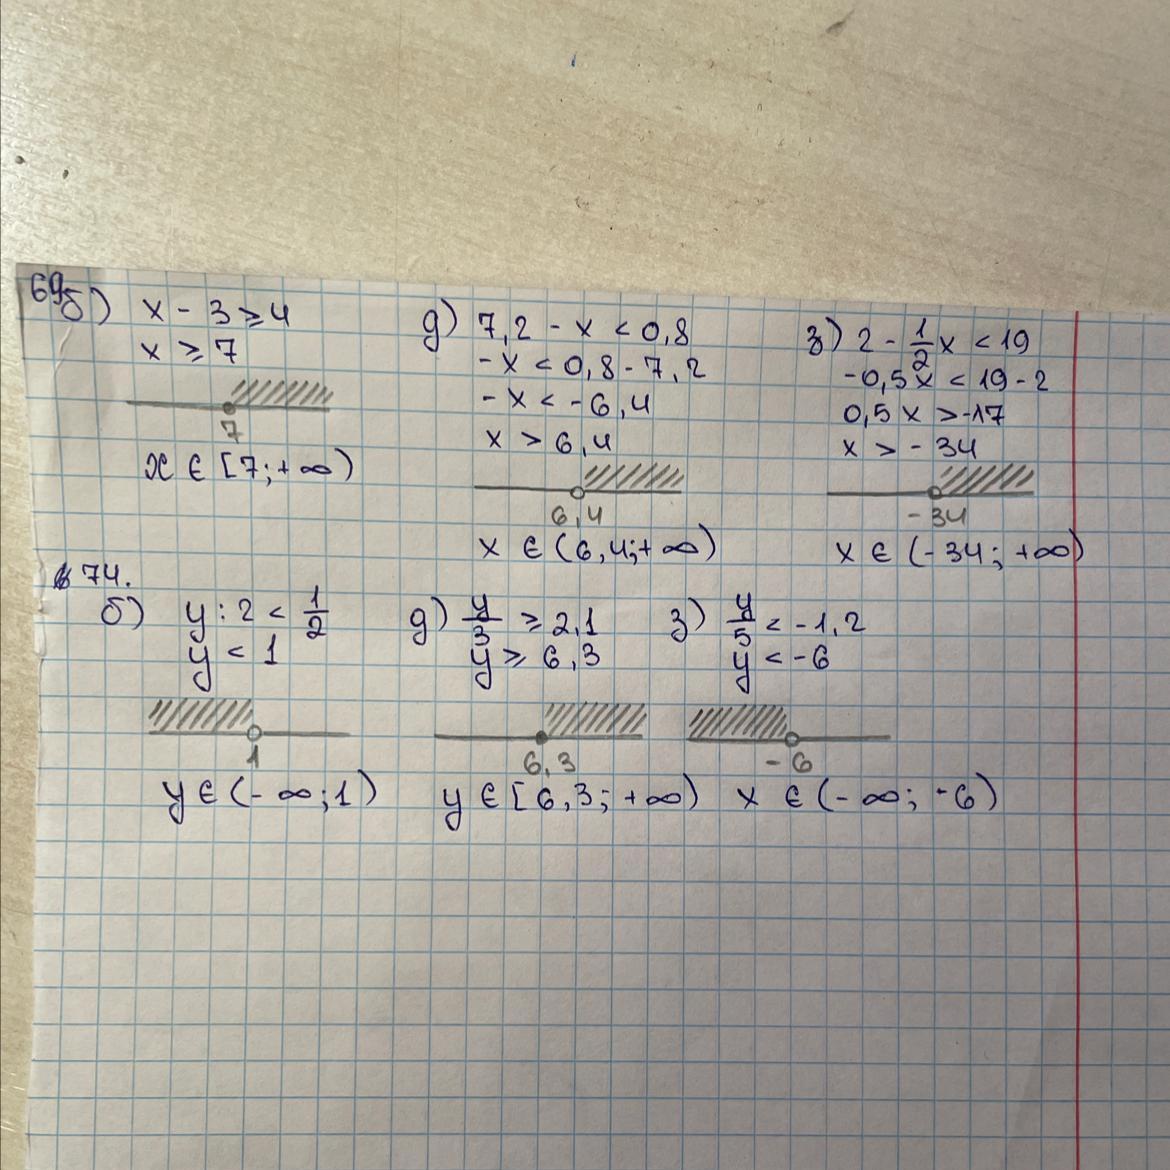 69
б) x - 3 ≥ 4
x ≥ 7
7
x ∈ [7; +∞)
д) 7,2 - x < 0,8
-x < 0,8 - 7,2
-x < -6,4
x > 6,4
6,4
x ∈ (6,4; +∞)
з) 2 - 1/2 x < 19
-0,5x < 19 - 2
0,5x > -17
x > -34
-34
x ∈ (-34; +∞)
74.
б) y : 2 < 1/2
y < 1
1
y ∈ (-∞; 1)
д) y/3 ≥ 2,1
y ≥ 6,3
6,3
y ∈ [6,3; +∞)
з) y/5 < -1,2
y < -6
-6
x ∈ (-∞; -6)